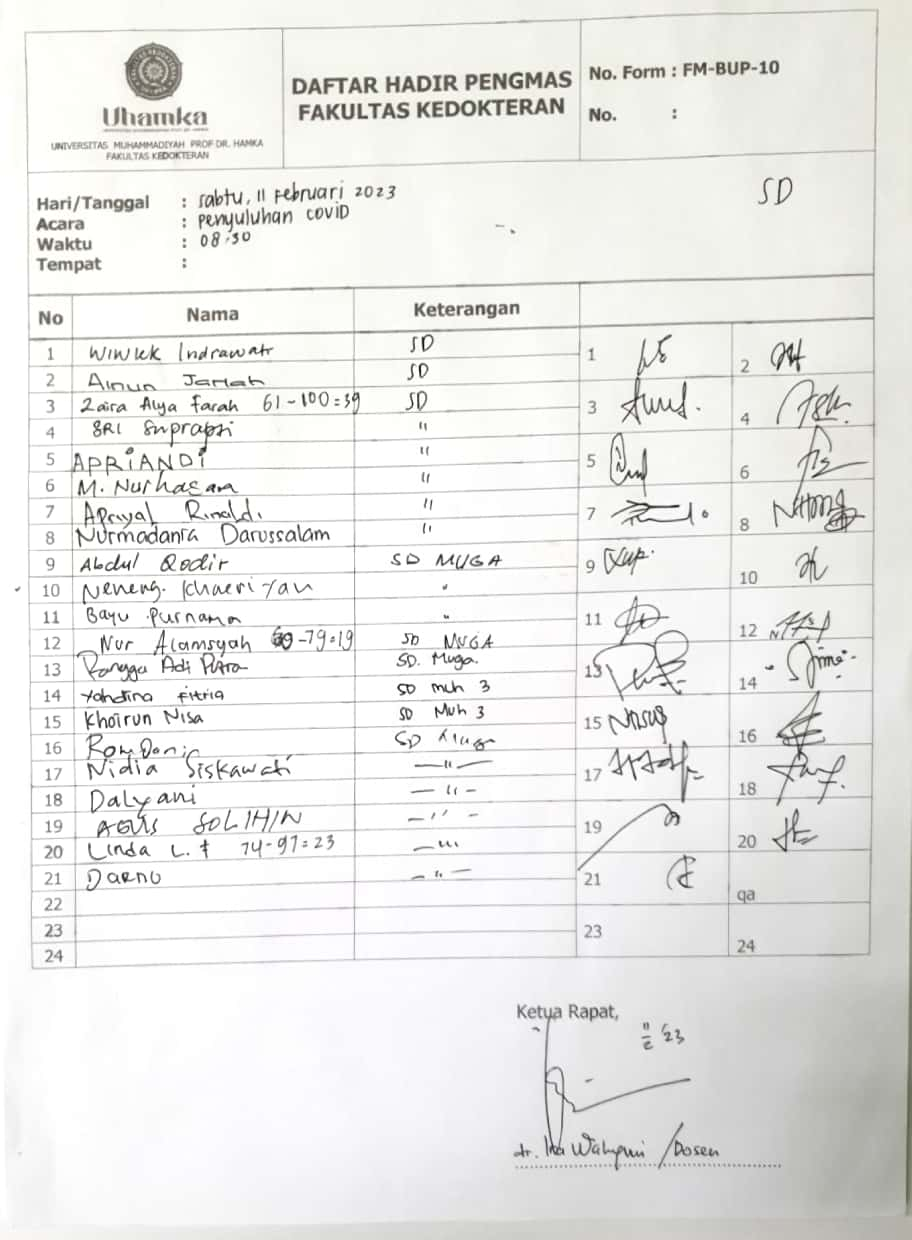 Uhamka
UNIVERSITAS MUHAMMADIYAH PROF DR. HAMKA
FAKULTAS KEDOKTERAN
DAFTAR HADIR PENGMAS
FAKULTAS KEDOKTERAN
No. Form : FM-BUP-10
No. :
SD
Hari/Tanggal : Sabtu, 11 Februari 2023
Acara : Penyuluhan COVID
Waktu : 08.30
Tempat :
No Nama Keterangan
1 Wiwiek Indrawati SD 1 2
2 Ainun Jariah SD
3 Zaira Alya Farah 61-100=39 SD 3 4
4 SRI Suprapti "
5 APRIANDI " 5 6
6 M. Nurhasara "
7 Apriyal Rinaldi " 7 8
8 Nurmadanra Darussalam "
9 Abdul Qodir SD MUGA 9 10
10 Neneng. Khaeriyah "
11 Bayu Purnama " 11 12
12 Nur Alamsyah 60-79=19 SD MUGA
13 Rangga Adi Putra SD. Muga. 13 14
14 Yohdina Fitria SD muh 3
15 Khoirun Nisa SD Muh 3 15 16
16 SD
17 Nidia Siskawati —"— 17 18
18 Dalyani —"—
19 AGUS SOLIHIN —"— 19 20
20 Linda L. f 74-97=23 —"
21 DARNO —"— 21 qa
22
23 23 24
24
Ketua Rapat,
11/2 '23
dr. Ika Wahyuni /Dosen